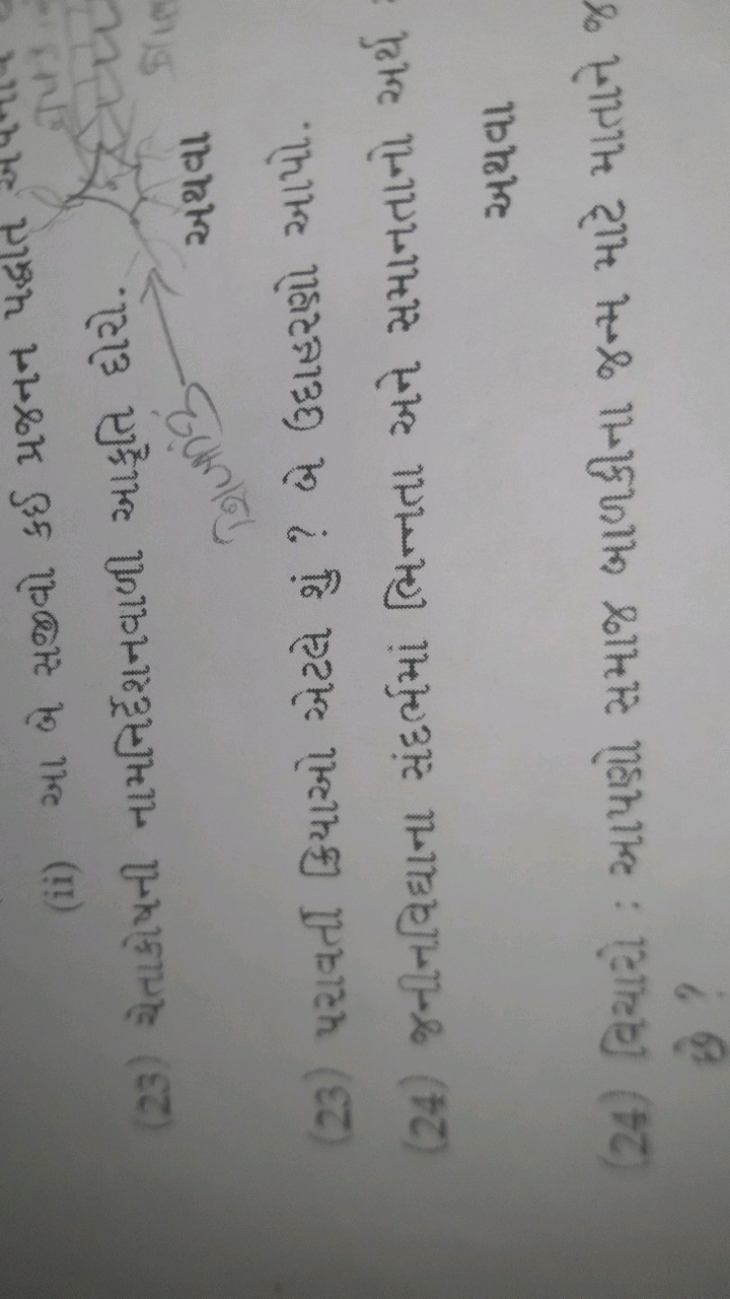 (ii) આ બે સજીવો કઈ પ્રજનન પદ્ધતિ
(23) ચેતાકોષની નામનિર્દેશનવાળી આકૃતિ દોરો.
અથવા
(23) પરાવર્તી ક્રિયાનો અર્થ શું ? બે ઉદાહરણો આપો.
(24) જનીનવિદ્યાના સંદર્ભમાં ભિન્નતા અને સમાનતાનો અર્થ
અથવા
(24) વિચારો : આપણો સમાજ બાળકીના જન્મ માટે માતાને જ
છે ?